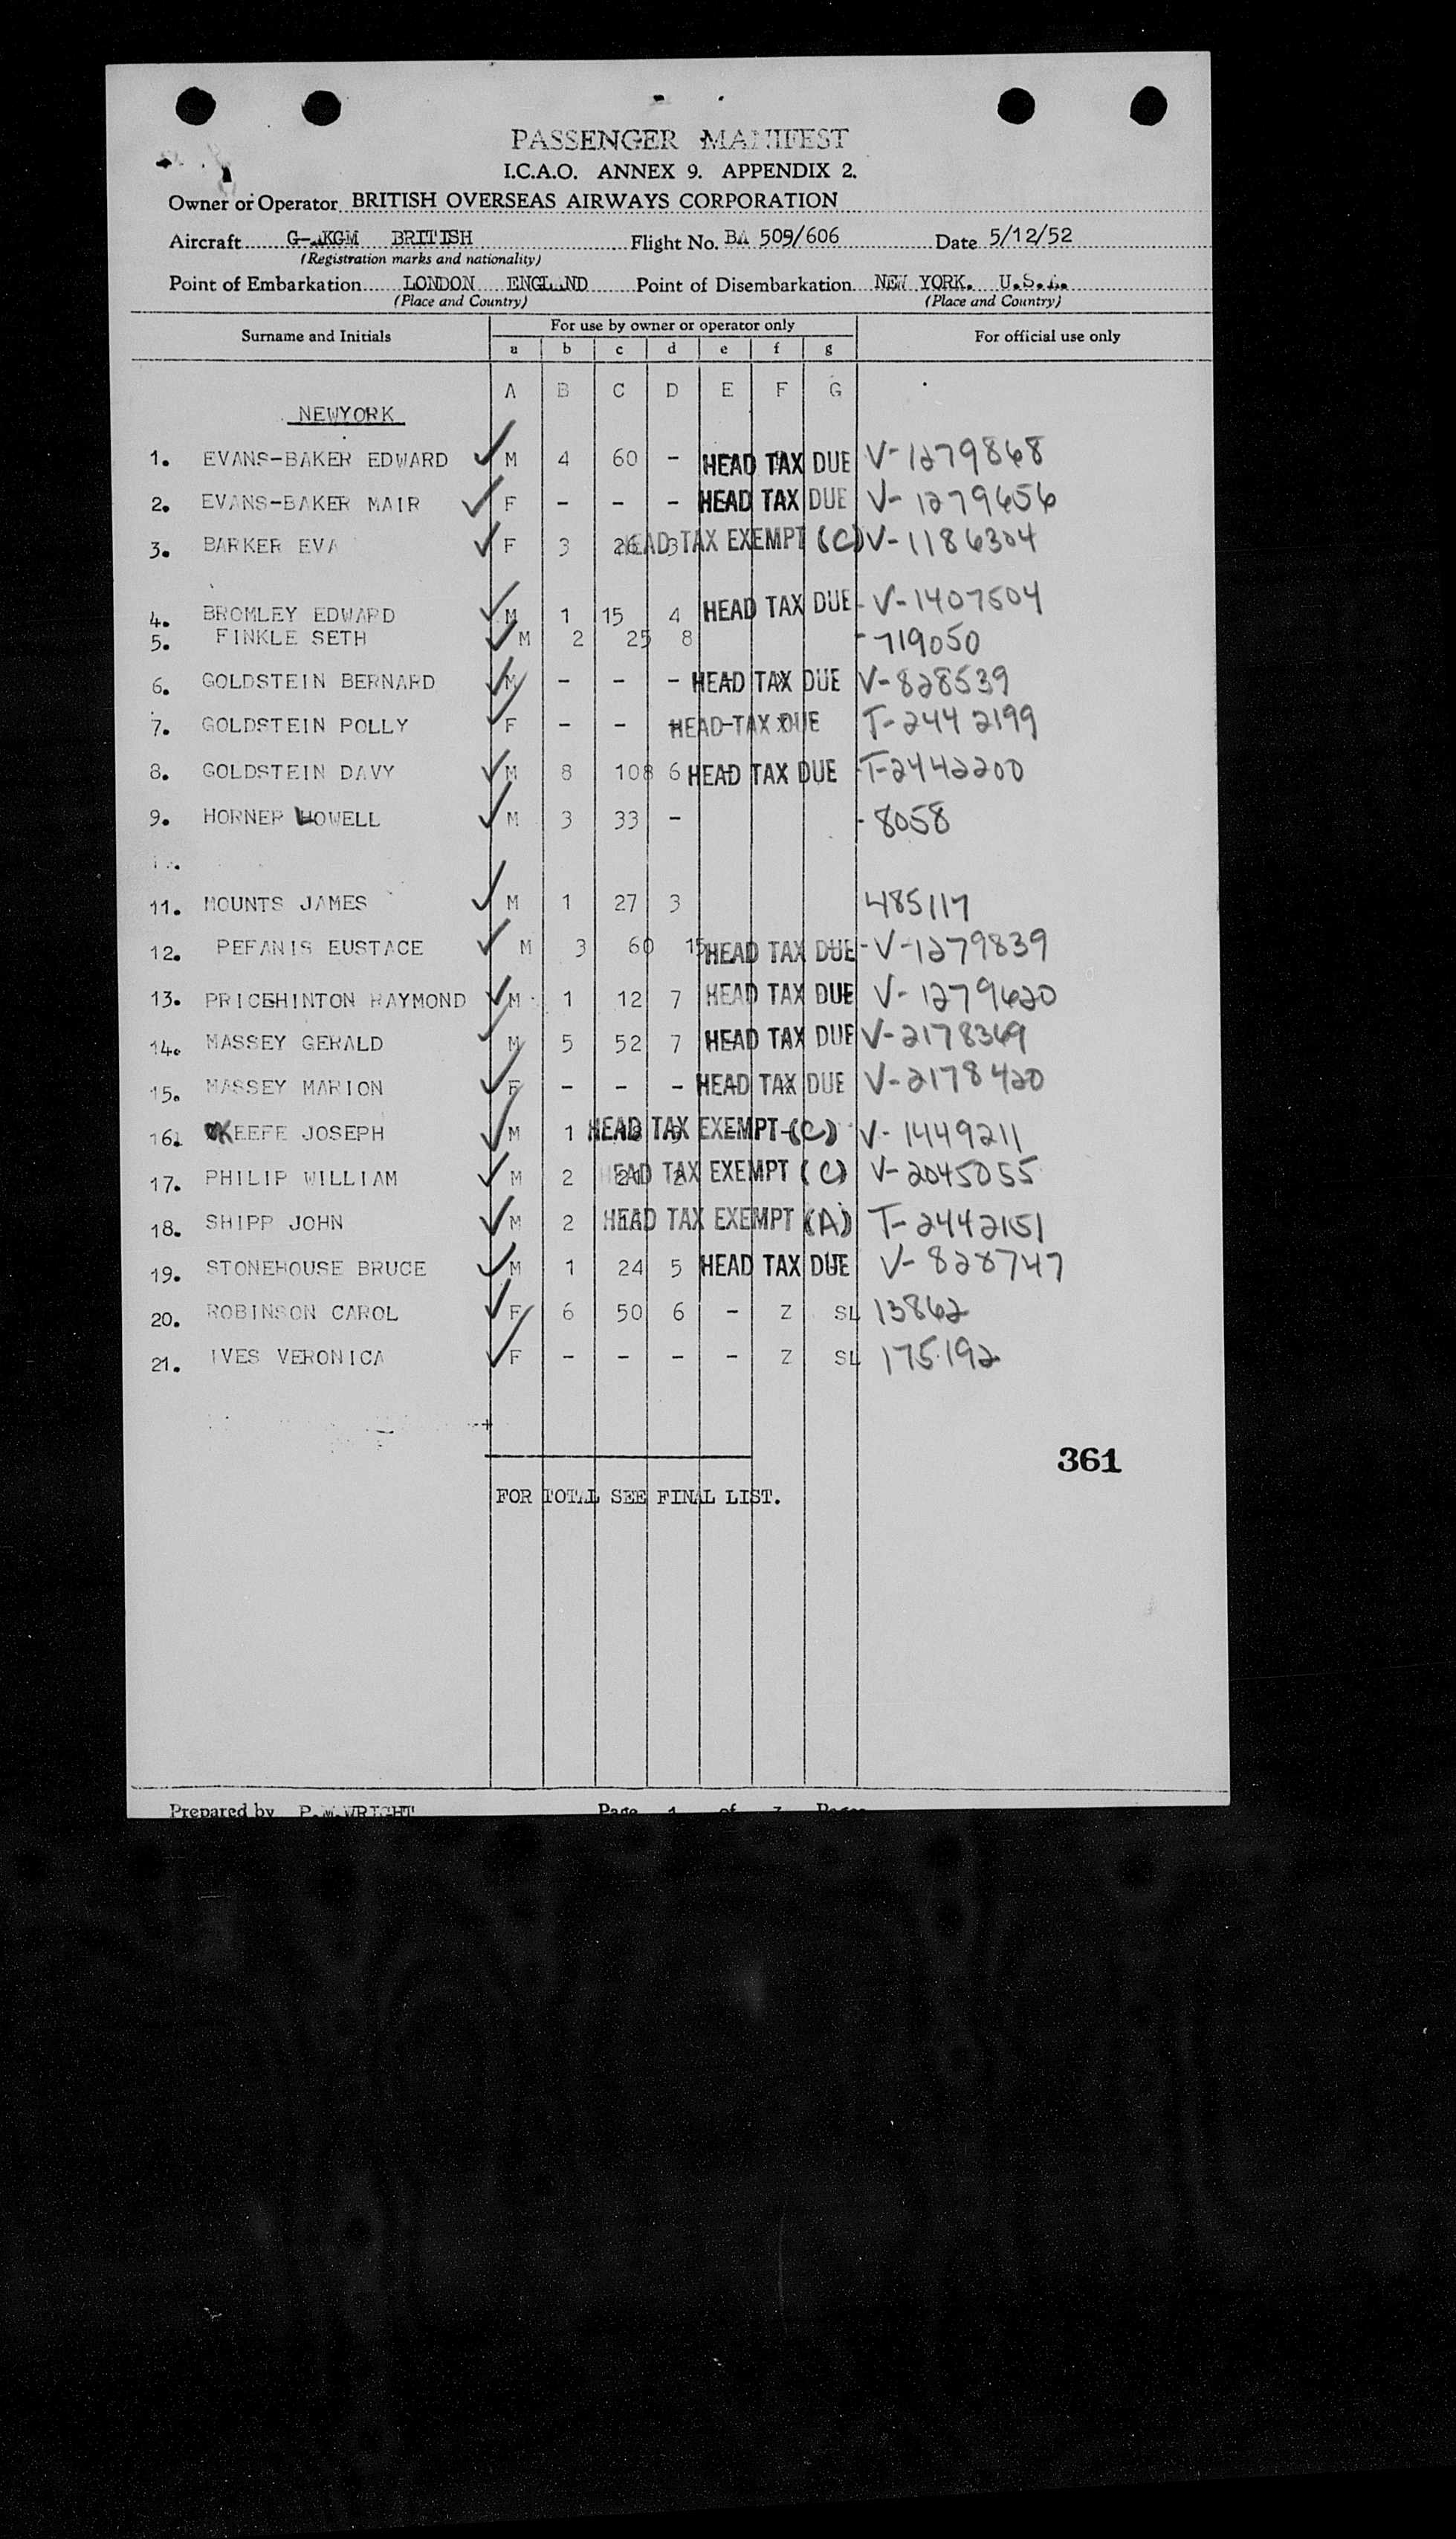 PASSENGER MANIFEST
I.C.A.O. ANNEX 9. APPENDIX 2.
Owner or Operator BRITISH OVERSEAS AIRWAYS CORPORATION
Aircraft G-AKGM BRITISH Flight No. BA 509/606 Date 5/12/52
(Registration marks and nationality)
Point of Embarkation LONDON ENGLAND Point of Disembarkation NEW YORK. U.S.A.
(Place and Country) (Place and Country)
Surname and Initials For use by owner or operator only For official use only
a b c d e f g
A B C D E F G
NEWYORK
1. EVANS-BAKER EDWARD M 4 60 - HEAD TAX DUE V-1279868
2. EVANS-BAKER MAIR F - - - HEAD TAX DUE V-1279656
3. BARKER EVA F 3 26 3 HEAD TAX EXEMPT (C) V-1186304
4. BROMLEY EDWARD M 1 15 4 HEAD TAX DUE - V-1407504
5. FINKLE SETH M 2 25 8 - 719050
6. GOLDSTEIN BERNARD M - - - HEAD TAX DUE V-828539
7. GOLDSTEIN POLLY F - - - HEAD TAX DUE T-2442199
8. GOLDSTEIN DAVY M 8 108 6 HEAD TAX DUE T-2442200
9. HORNER HOWELL M 3 33 - - 8058
11. MOUNTS JAMES M 1 27 3 485117
12. PEFANIS EUSTACE M 3 60 15 HEAD TAX DUE - V-1279839
13. PRICEHINTON RAYMOND M 1 12 7 HEAD TAX DUE V-1279620
14. MASSEY GERALD M 5 52 7 HEAD TAX DUE V-2178369
15. MASSEY MARION F - - - HEAD TAX DUE V-2178420
16. OKEEFE JOSEPH M 1 HEAD TAX EXEMPT (C) V-1449211
17. PHILIP WILLIAM M 2 HEAD TAX EXEMPT (C) V-2045055
18. SHIPP JOHN M 2 HEAD TAX EXEMPT (A) T-2442151
19. STONEHOUSE BRUCE M 1 24 5 HEAD TAX DUE V-828747
20. ROBINSON CAROL F 6 50 6 - Z SL 13862
21. IVES VERONICA F - - - - Z SL 175192
361
FOR TOTAL SEE FINAL LIST.
Prepared by P.M.WRIGHT Page 1 of Pages